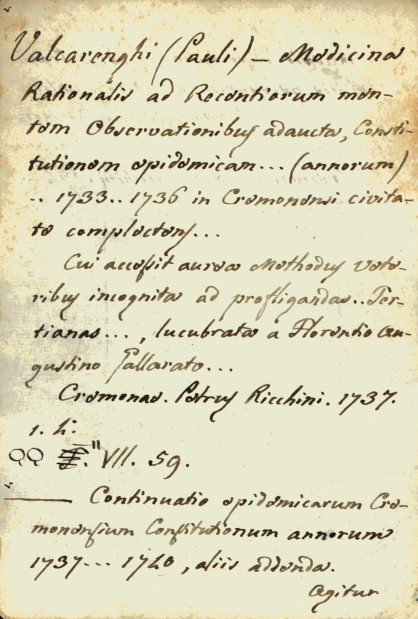 Valcarenghi (Pauli) — Medicina
Rationalis ad Recentiorum men-
tem Observationibus adaucta, Consti-
tutionem epidemicam... (annorum)
.. 1733.. 1736 in Cremonensi civita-
te complectens...
Cui accessit aurea Methodus vete-
ribus incognita ad profligandas.. Ter-
tianas..., lucubrata a Florentio Au-
gustino Gallarato...
Cremonae. Petrus Ricchini. 1737.
1. h:
QQ VII. 59.
— Continuatio epidemicarum Cre-
monensium Constitutionum annorum
1737... 1740, aliis addenda.
Agitur